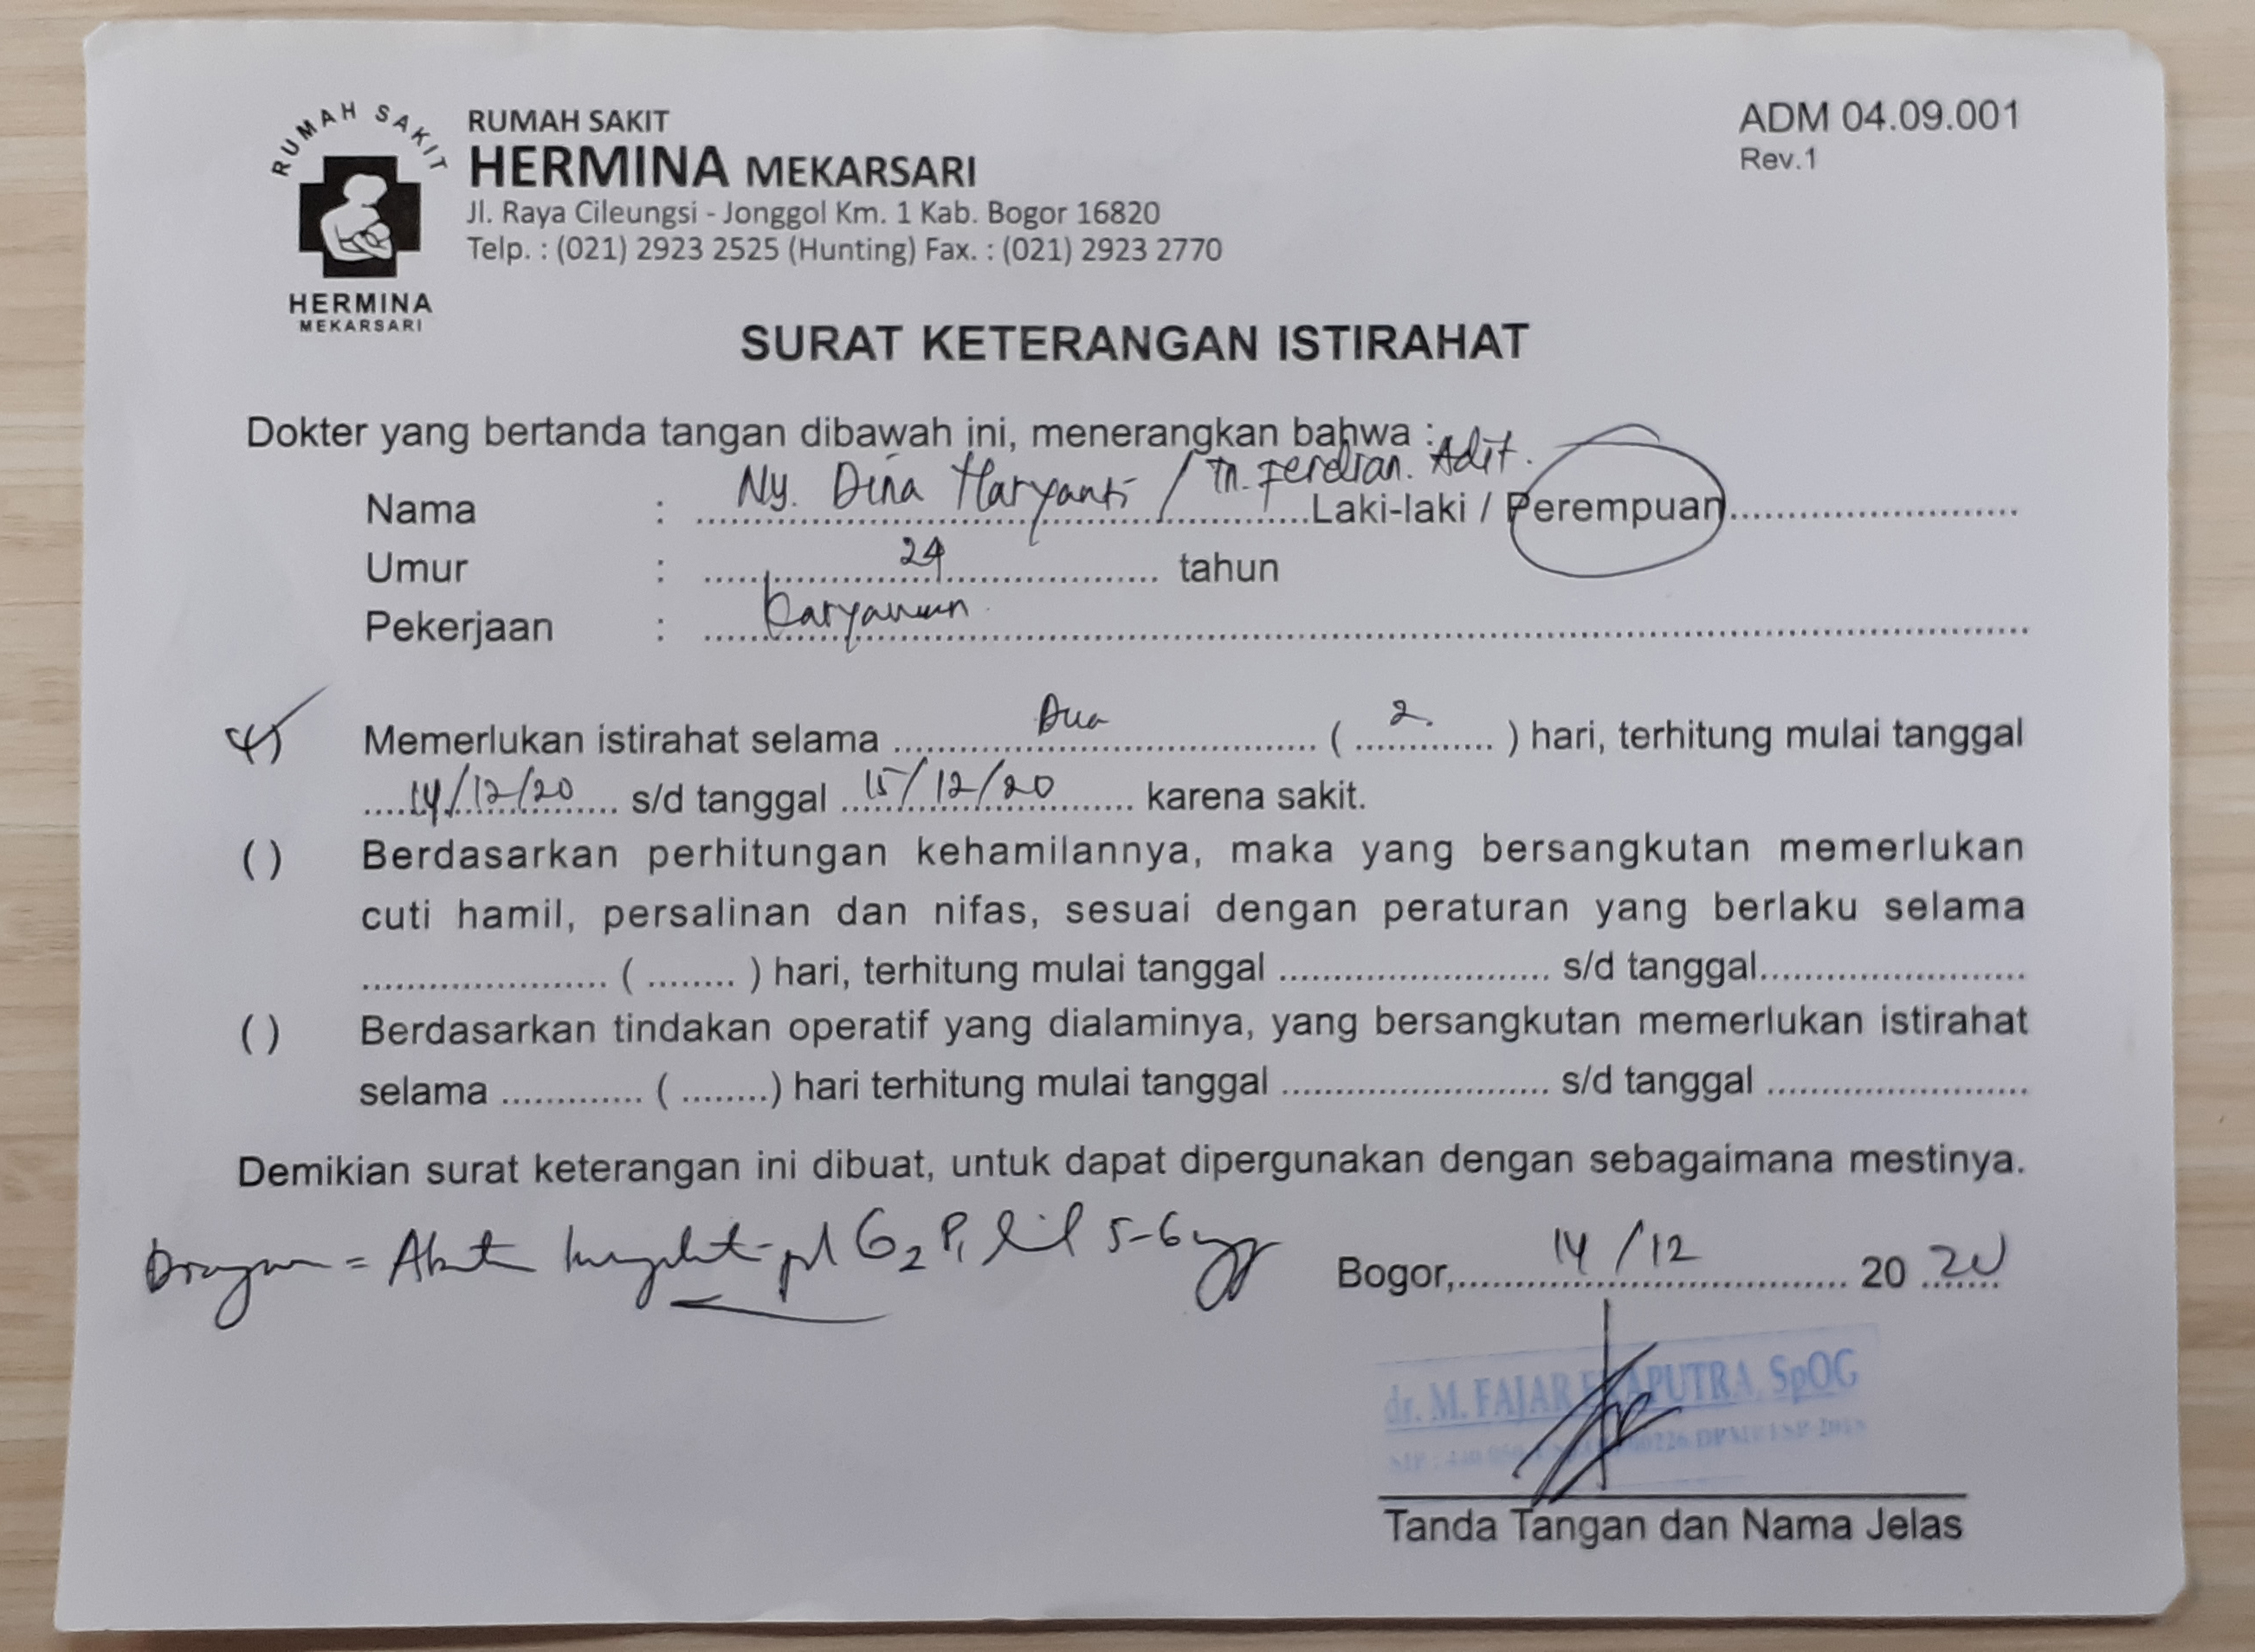 RUMAH SAKIT
HERMINA
MEKARSARI
RUMAH SAKIT
HERMINA MEKARSARI
Jl. Raya Cileungsi - Jonggol Km. 1 Kab. Bogor 16820
Telp. : (021) 2923 2525 (Hunting) Fax. : (021) 2923 2770
ADM 04.09.001
Rev.1
SURAT KETERANGAN ISTIRAHAT
Dokter yang bertanda tangan dibawah ini, menerangkan bahwa :
Nama : Ny. Dina Haryanti / Tn. Ferdian. Adit. Laki-laki / Perempuan
Umur : 24 tahun
Pekerjaan : Karyawan
Memerlukan istirahat selama Dua ( 2. ) hari, terhitung mulai tanggal
14/12/20 s/d tanggal 15/12/20 karena sakit.
( ) Berdasarkan perhitungan kehamilannya, maka yang bersangkutan memerlukan
cuti hamil, persalinan dan nifas, sesuai dengan peraturan yang berlaku selama
............ ( ........ ) hari, terhitung mulai tanggal ............ s/d tanggal............
( ) Berdasarkan tindakan operatif yang dialaminya, yang bersangkutan memerlukan istirahat
selama ............ ( ........) hari terhitung mulai tanggal ............ s/d tanggal ............
Demikian surat keterangan ini dibuat, untuk dapat dipergunakan dengan sebagaimana mestinya.
G2 P1 5-6
Bogor, 14/12 2020
dr. M. FAJAR EKAPUTRA, SpOG
Tanda Tangan dan Nama Jelas